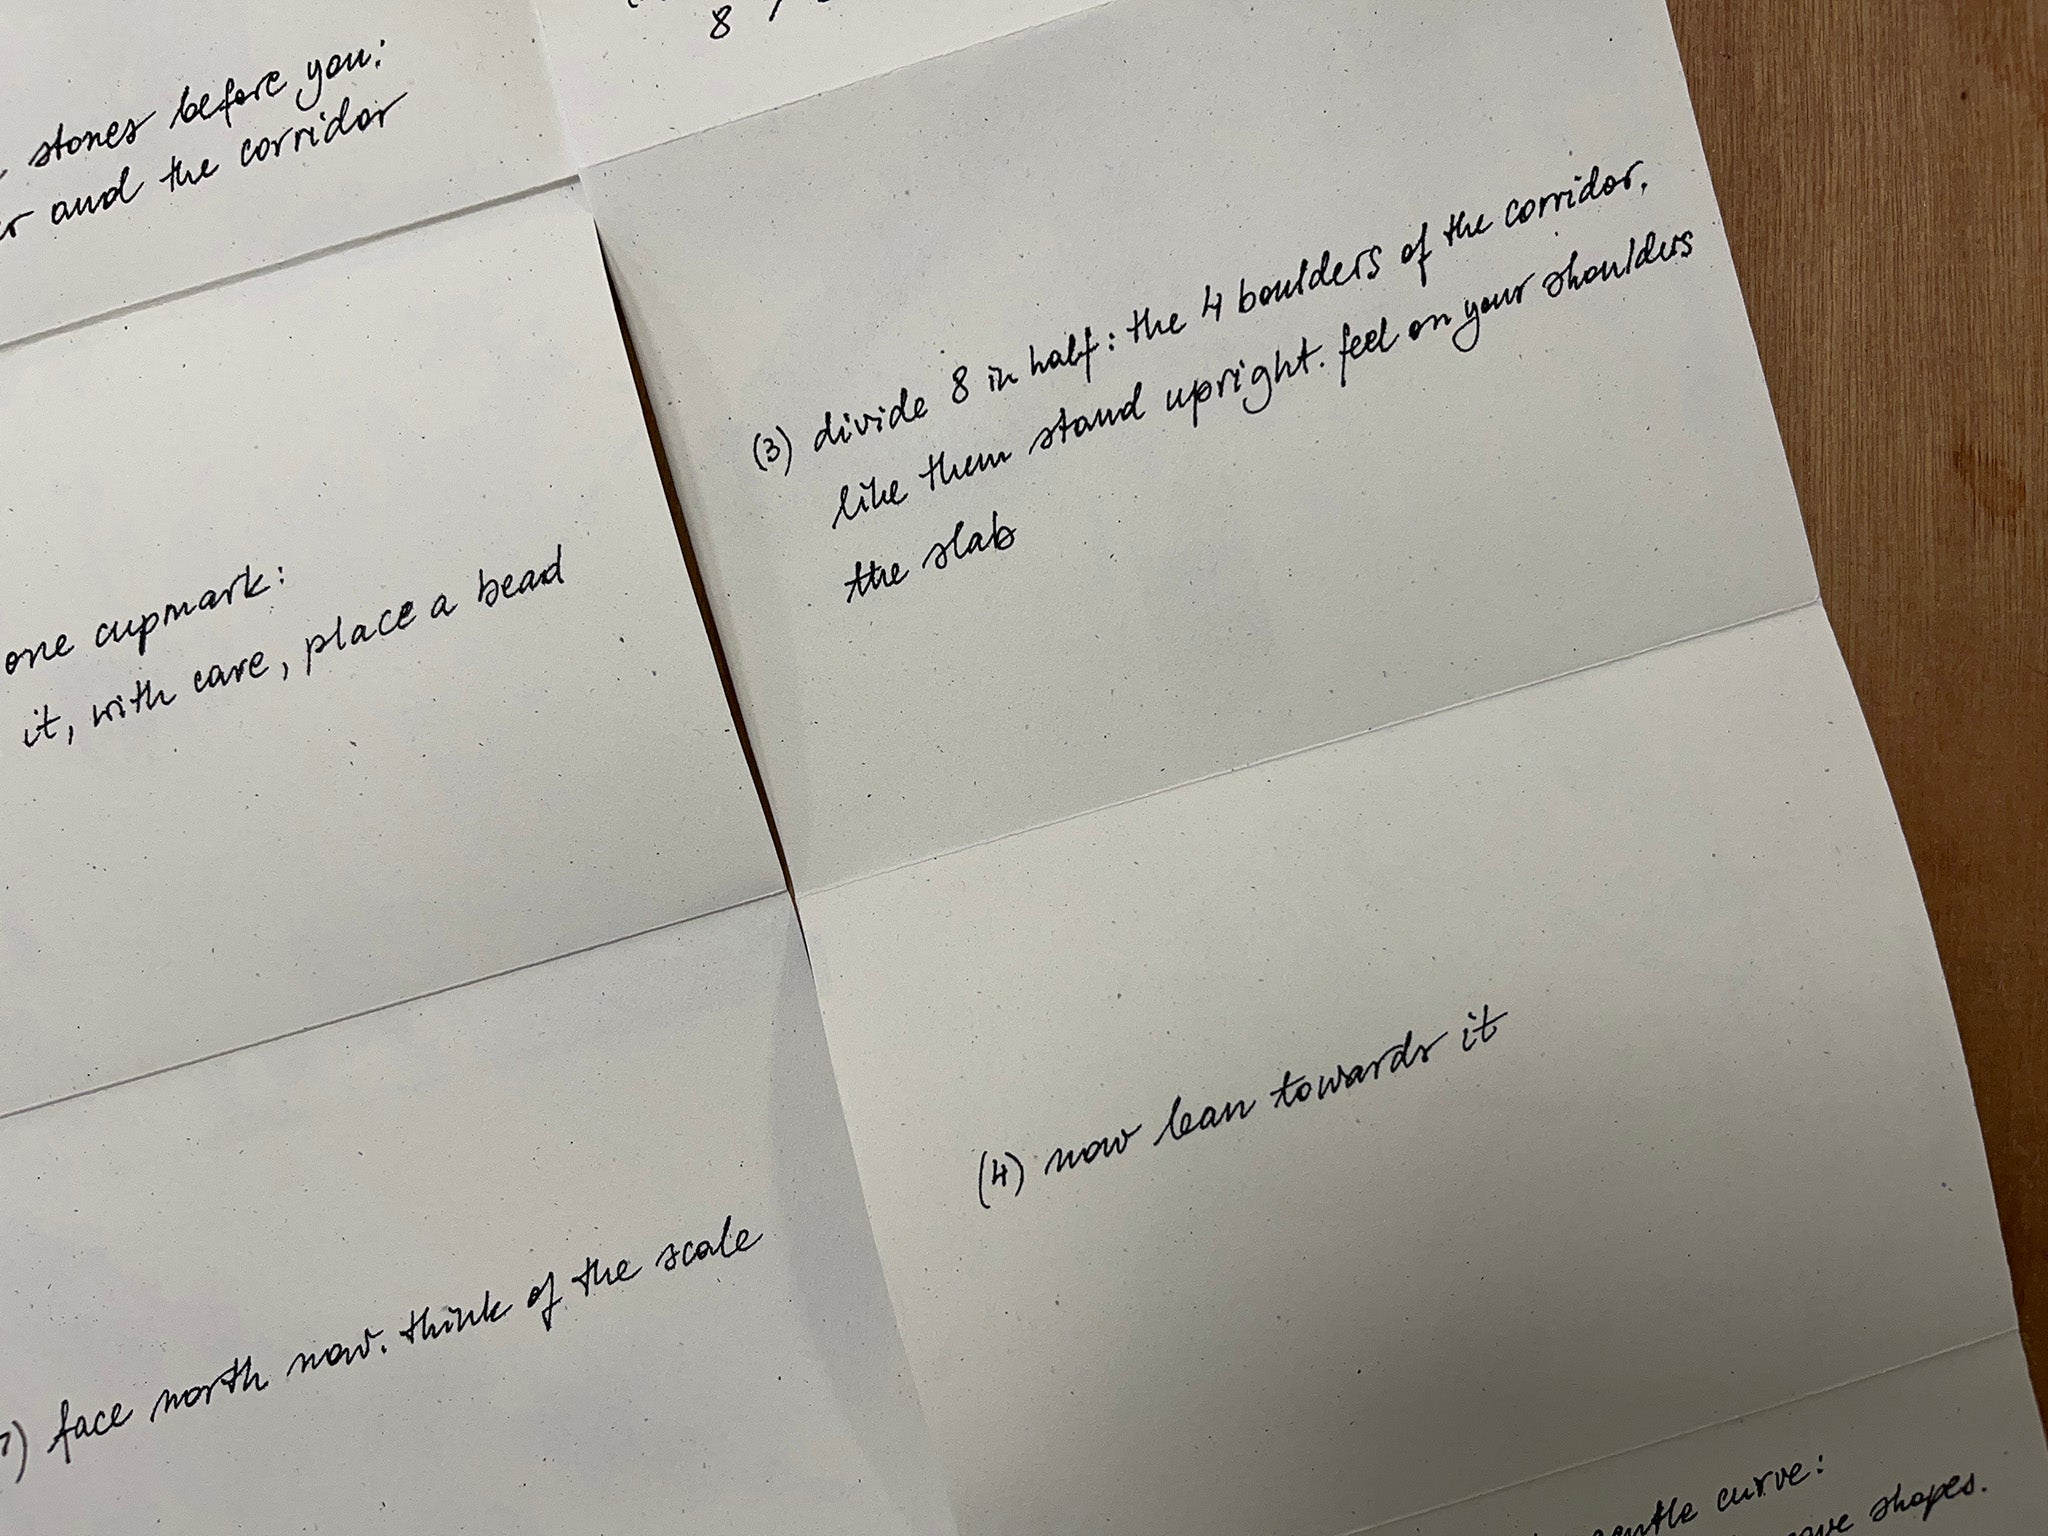 stones before you:
and the corridor
one cupmark:
it, with care, place a bead
face north now. think of the scale
8
(3) divide 8 in half: the 4 boulders of the corridor.
like them stand upright. feel on your shoulders
the slab
(4) now lean towards it
curve:
shapes.